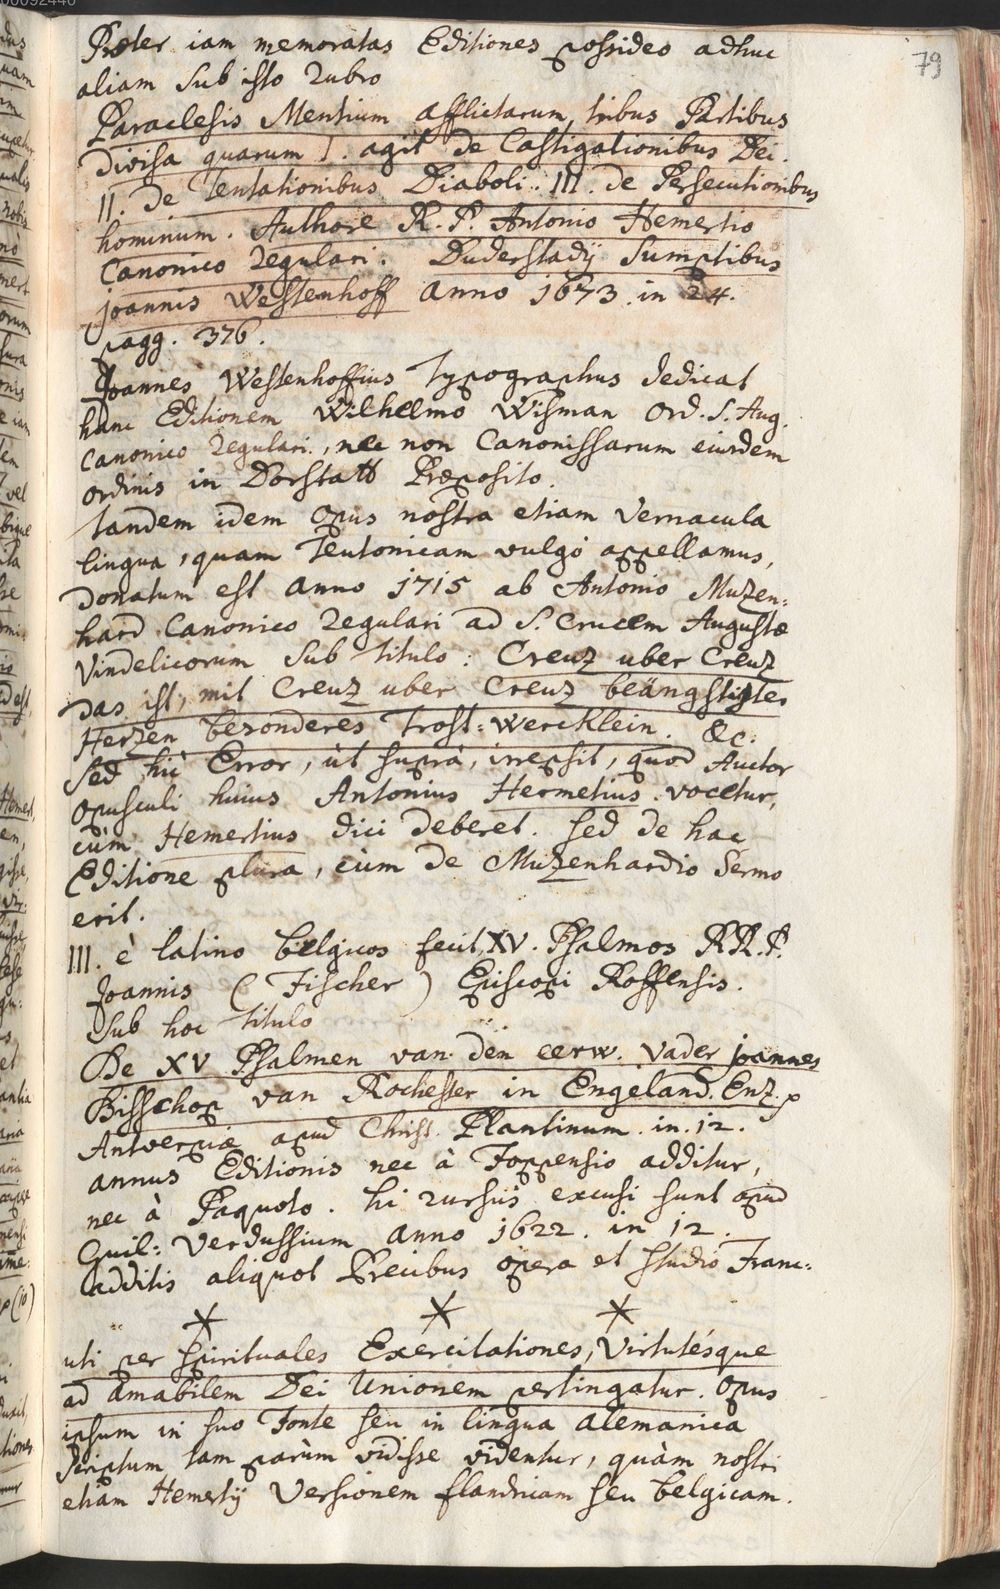 79
Præter iam memoratas Editiones possideo adhuc
aliam sub isto Rubro
Paraclesis Mentium afflictarum, tribus Partibus
divisa quarum I. agit de Castigationibus Dei.
II. De Tentationibus Diaboli. III. de Persecutionibus
hominum. Authore R. P. Antonio Hemertio
Canonico Regulari. Duderstadij Sumptibus
joannis Westenhoff anno 1673. in 24.
pagg. 376.
Joannes Westenhoffius Typographus dedicat
hanc Editionem Wilhelmo Wisman Ord. S. Aug.
Canonico Regulari, nec non Canonissarum eiusdem
ordinis in Dorstatt Præposito.
tandem idem Opus nostra etiam Vernacula
lingua, quam Teutonicam vulgò appellamus,
donatum est anno 1715 ab Antonio Muzen=
hard Canonico Regulari ad S. Crucem Augustæ
Vindelicorum sub titulo: Creuz uber Creuz
das ist, mit Creuz uber Creuz beängstigter
Herzen besonderes Trost=wercklein. &c:
sed hic Error, ùt suprà, irrepsit, quod Auctor
opusculi huius Antonius Hermetius vocetur,
cùm Hemertius dici deberet. sed de hac
Editione plura, cùm de Muzenhardio Sermo
erit.
III. è latino belgicos fecit XV. Psalmos RR. P.
Joannis (Fischer) Episcopi Roffensis.
Sub hoc titulo
De XV Psalmen van den eerw. Vader joannes
Bisschop van Rochester in Engeland. Enz.
Antverpiæ apud Christ. Plantinum. in. 12.
annus Editionis nec à Foppensio additur,
nec à Paquoto. hi rursùs excusi sunt apud
Guil: Verdussium anno 1622. in 12.
additis aliquot Precibus opera et studio Franc:
* * *
uti per spirituales Exercitationes, Virtutésque
ad amabilem Dei Unionem pertingatur. Opus
ipsum in suo Fonte seu in lingua alemanica
scriptum tam parùm vidisse videntur, quàm nostri
etiam Hemertij Versionem flandricam seu belgicam.